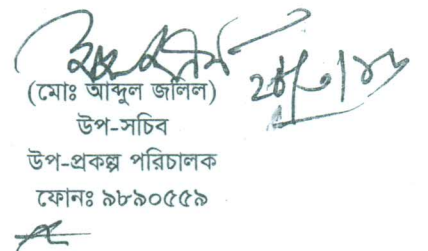 (মোঃ আব্দুল জলিল)
উপ-সচিব
উপ-প্রকল্প পরিচালক
ফোনঃ ৯৮৯০৫৫৯